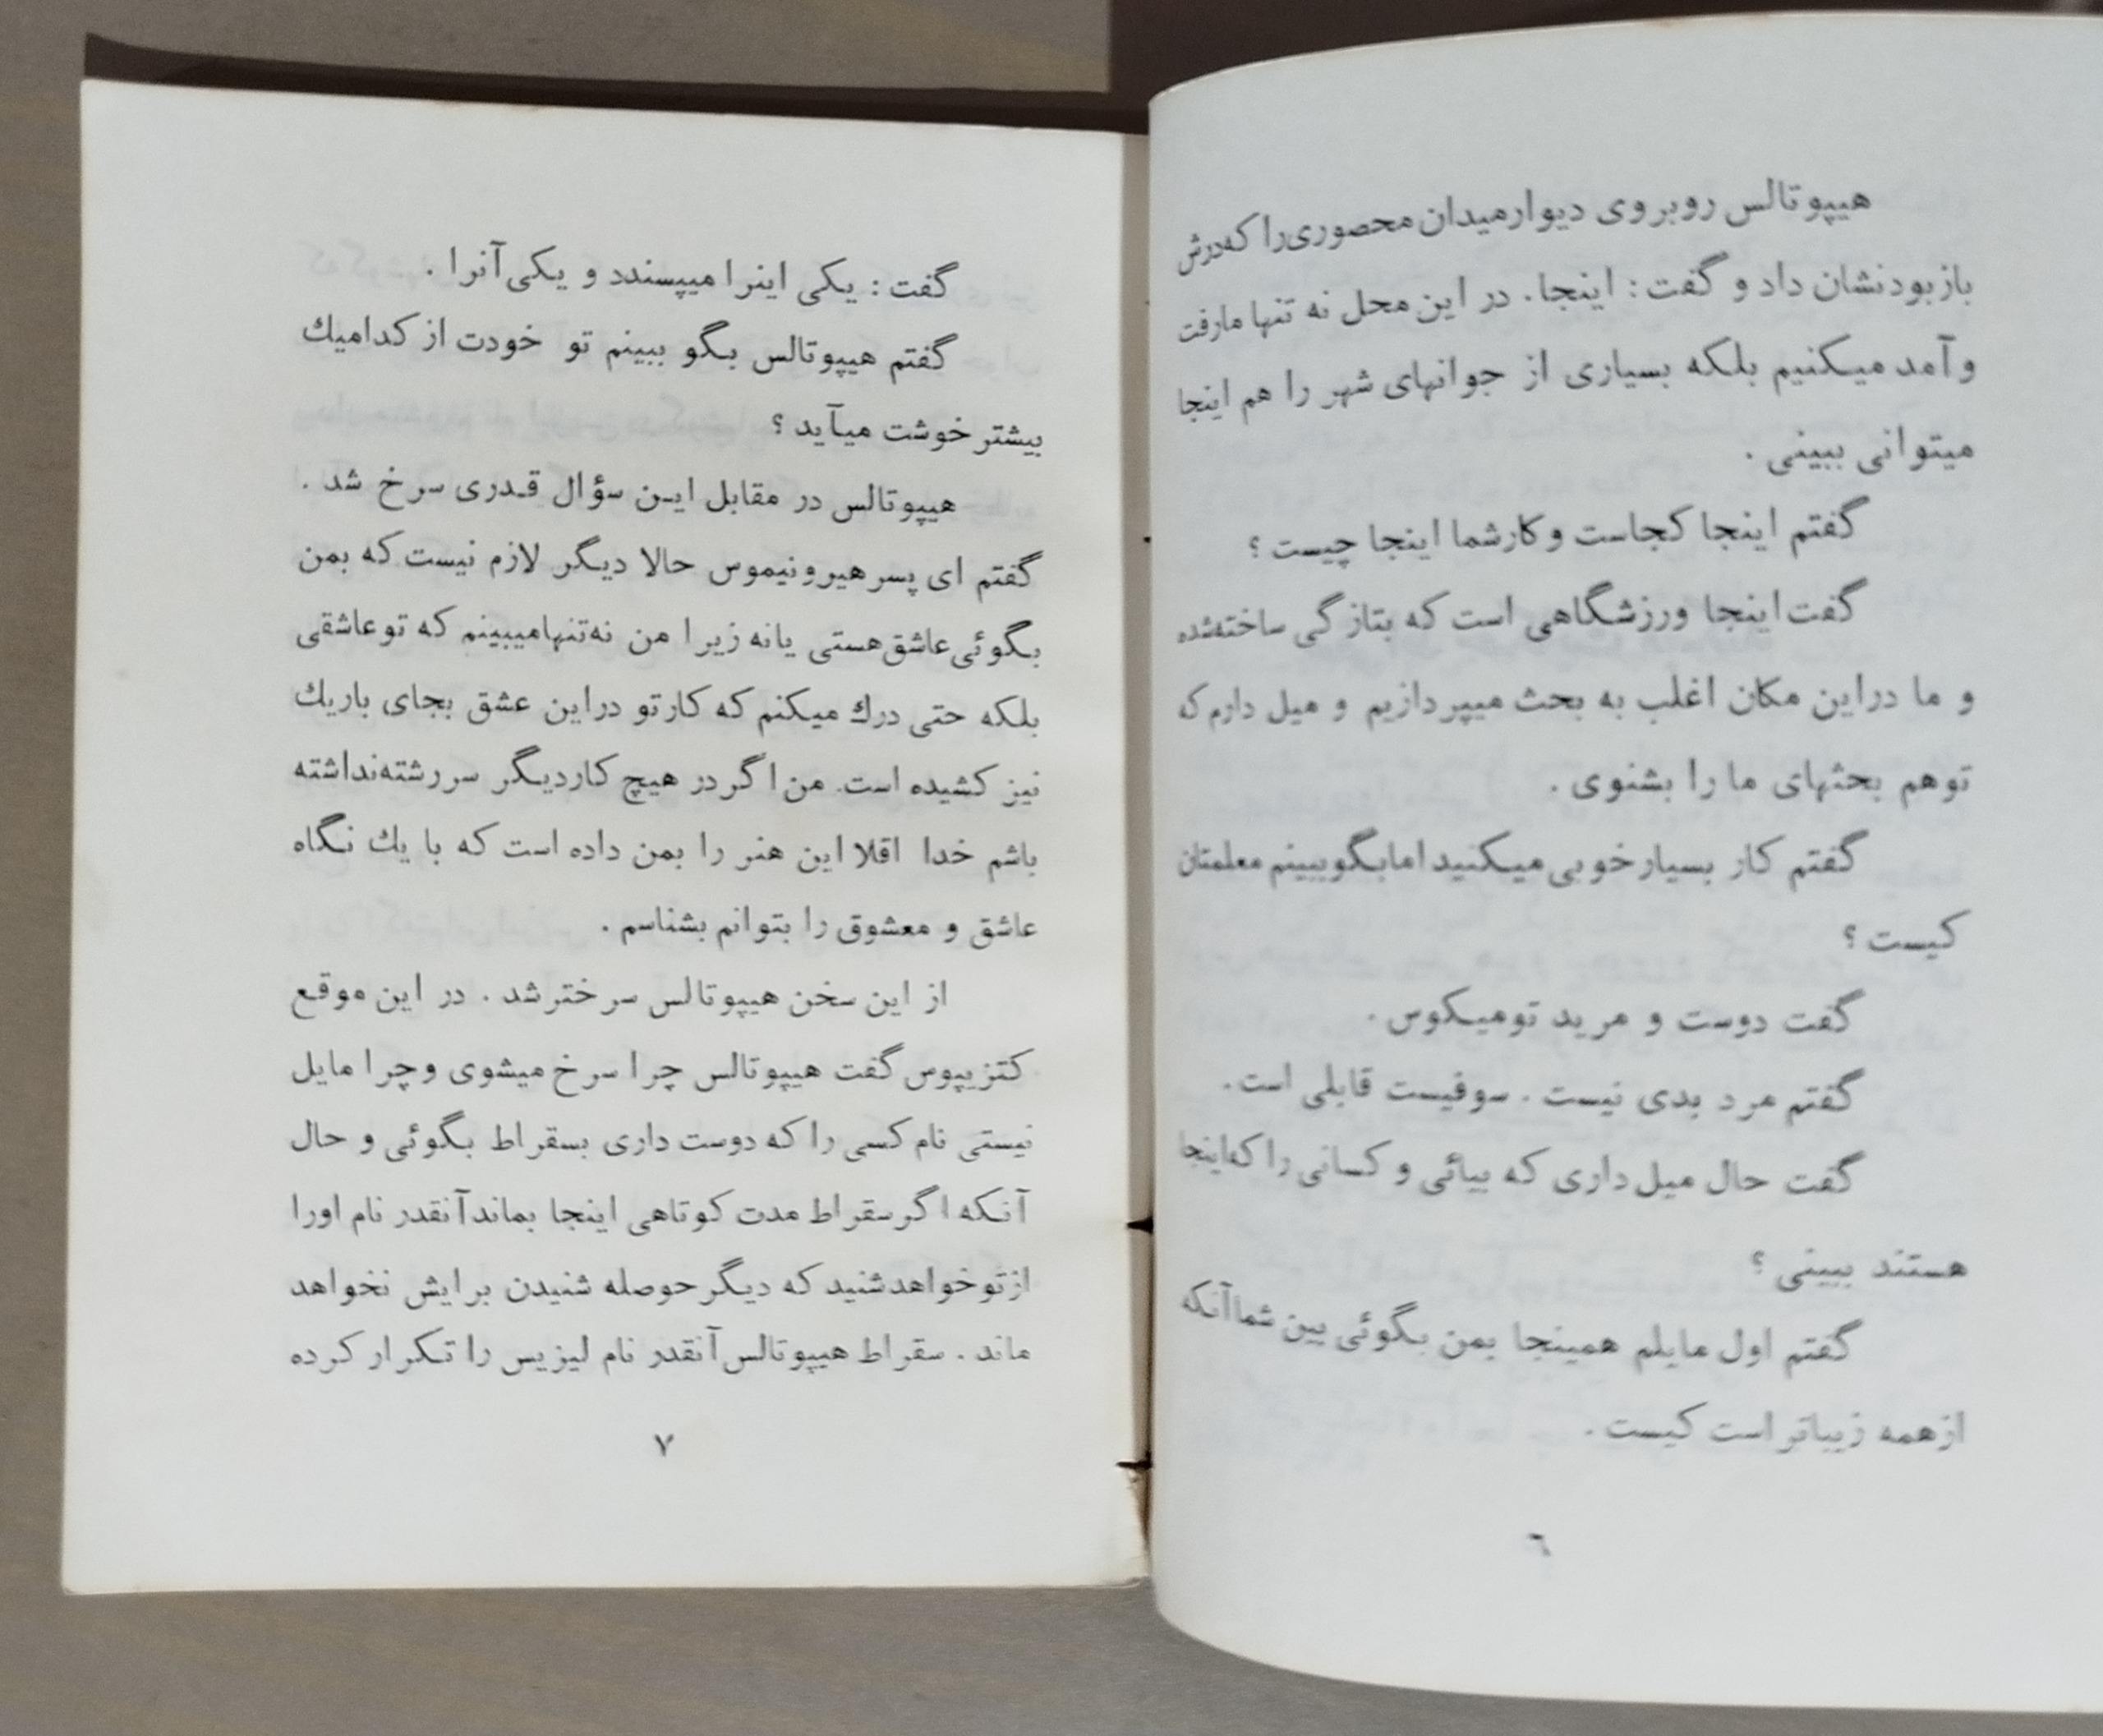 هیپوتالس روبروی دیوارمیدان محصوری‌را که‌درش
بازبودنشان داد و گفت : اینجا. در این محل نه تنها مارفت
وآمد میکنیم بلکه بسیاری از جوانهای شهر را هم اینجا
میتوانی ببینی .
گفتم اینجا کجاست وکارشما اینجا چیست ؟
گفت اینجا ورزشگاهی است که بتازگی ساخته‌شده
و ما دراین مکان اغلب به بحث میپردازیم و میل دارم که
توهم بحثهای ما را بشنوی .
گفتم کار بسیارخوبی میکنید امابگوببینم معلمتان
کیست ؟
گفت دوست و مرید تومیکوس .
گفتم مرد بدی نیست . سوفیست قابلی است.
گفت حال میل داری که بیائی و کسانی را که‌اینجا
هستند ببینی ؟
گفتم اول مایلم همینجا بمن بگوئی بین شماآنکه
ازهمه زیباتر است کیست .
٦
گفت : یکی اینرا میپسندد و یکی‌آنرا .
گفتم هیپوتالس بگو ببینم تو خودت از کدامیك
بیشتر خوشت میآید ؟
هیپوتالس در مقابل ایـن سؤال قـدری سرخ شد .
گفتم ای پسر هیرونیموس حالا دیگر لازم نیست که بمن
بگوئی‌عاشق‌هستی یانه زیرا من نه‌تنهامیبینم که توعاشقی
بلکه حتی درك میکنم که کارتو دراین عشق بجای باریك
نیز کشیده است. من اگر در هیچ کاردیگر سررشته‌نداشته
باشم خدا اقلا این هنر را بمن داده است که با یك نگاه
عاشق و معشوق را بتوانم بشناسم .
از این سخن هیپوتالس سرختر شد . در این موقع
کتزیپوس گفت هیپوتالس چرا سرخ میشوی وچرا مایل
نیستی نام کسی را که دوست داری بسقراط بگوئی و حال
آنکه اگر سقراط مدت کوتاهی اینجا بماند آنقدر نام اورا
ازتوخواهدشنید که دیگر حوصله شنیدن برایش نخواهد
ماند . سقراط هیپوتالس‌آنقدر نام لیزیس را تکرار کرده
۷